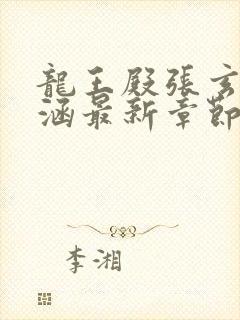 龍王殿張玄
涵最新章節
李湘